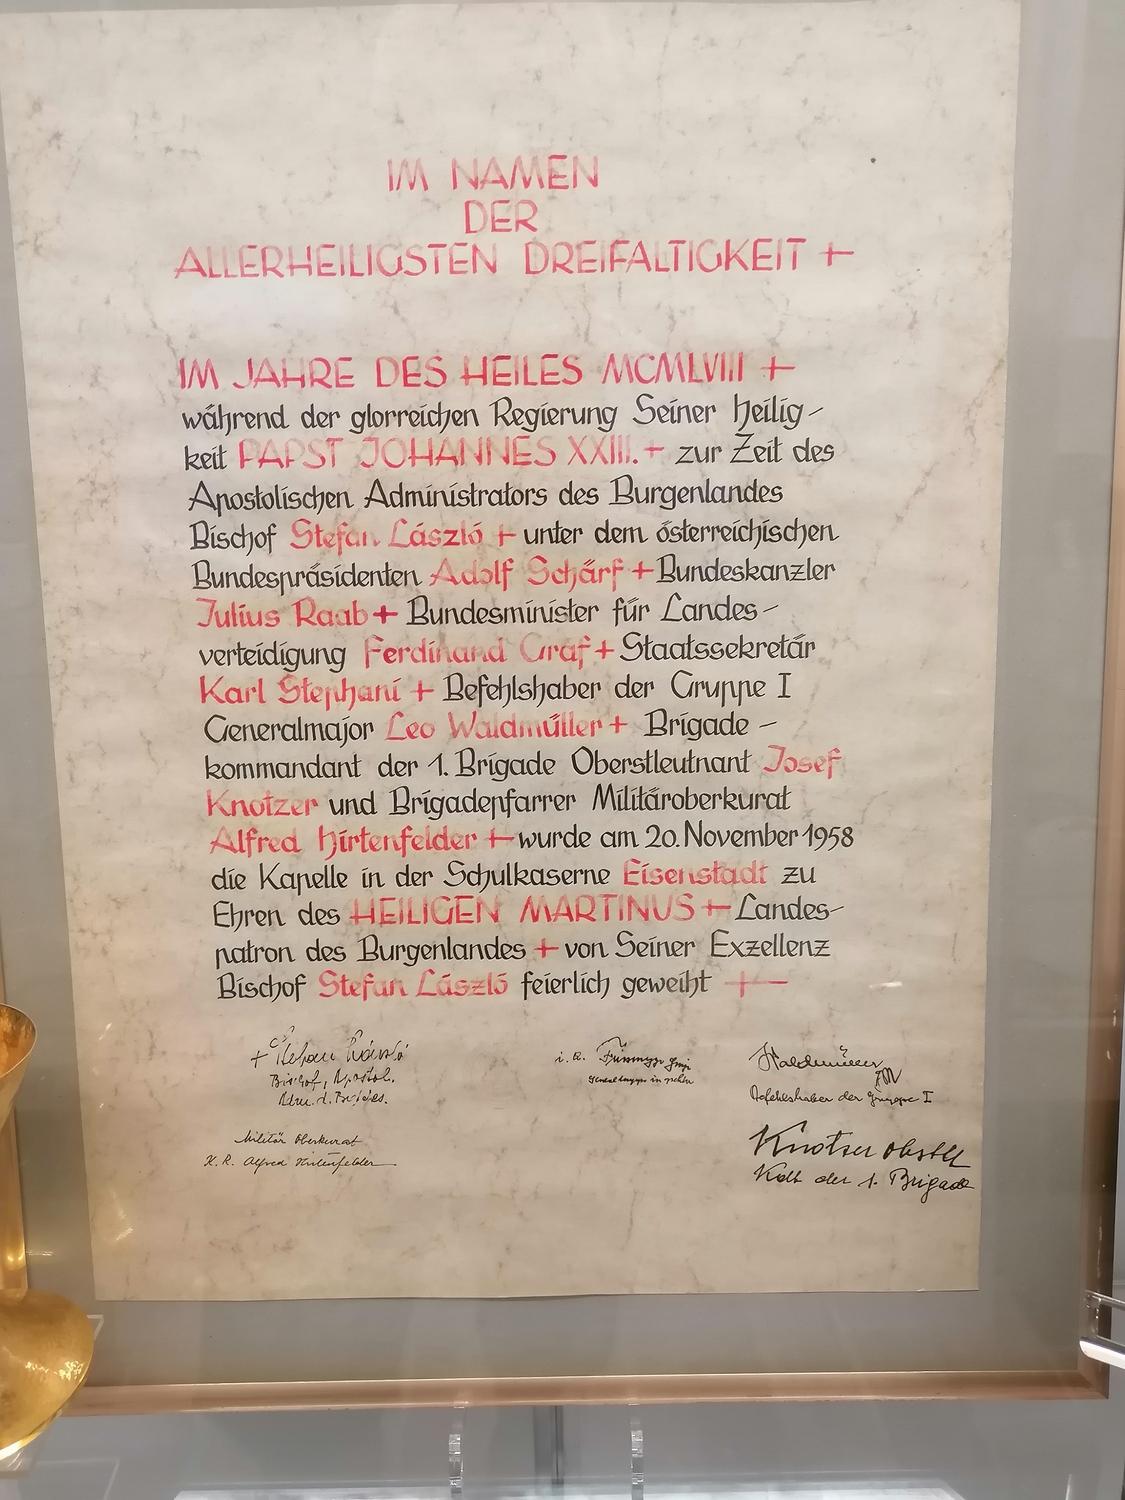 IM NAMEN
DER
ALLERHEILIGSTEN DREIFALTIGKEIT +
IM JAHRE DES HEILES MCMLVIII +
während der glorreichen Regierung Seiner Heilig-
keit PAPST JOHANNES XXIII. + zur Zeit des
Apostolischen Administrators des Burgenlandes
Bischof Stefan László + unter dem österreichischen
Bundespräsidenten Adolf Schärf + Bundeskanzler
Julius Raab + Bundesminister für Landes-
verteidigung Ferdinand Graf + Staatssekretär
Karl Stephani + Befehlshaber der Gruppe I
Generalmajor Leo Waldmüller + Brigade-
kommandant der 1. Brigade Oberstleutnant Josef
Knotzer und Brigadepfarrer Militäroberkurat
Alfred Hirtenfelder + wurde am 20. November 1958
die Kapelle in der Schulkaserne Eisenstadt zu
Ehren des HEILIGEN MARTINUS + Landes-
patron des Burgenlandes + von Seiner Exzellenz
Bischof Stefan László feierlich geweiht +
+ Stefan László
Bischof, Apostol.
Adm. d. Bgldes.
Militär Oberkurat
K. R. Alfred Hirtenfelder
Waldmüller
Befehlshaber der Gruppe I
Knotzer Obstlt
Kdt der 1. Brigade